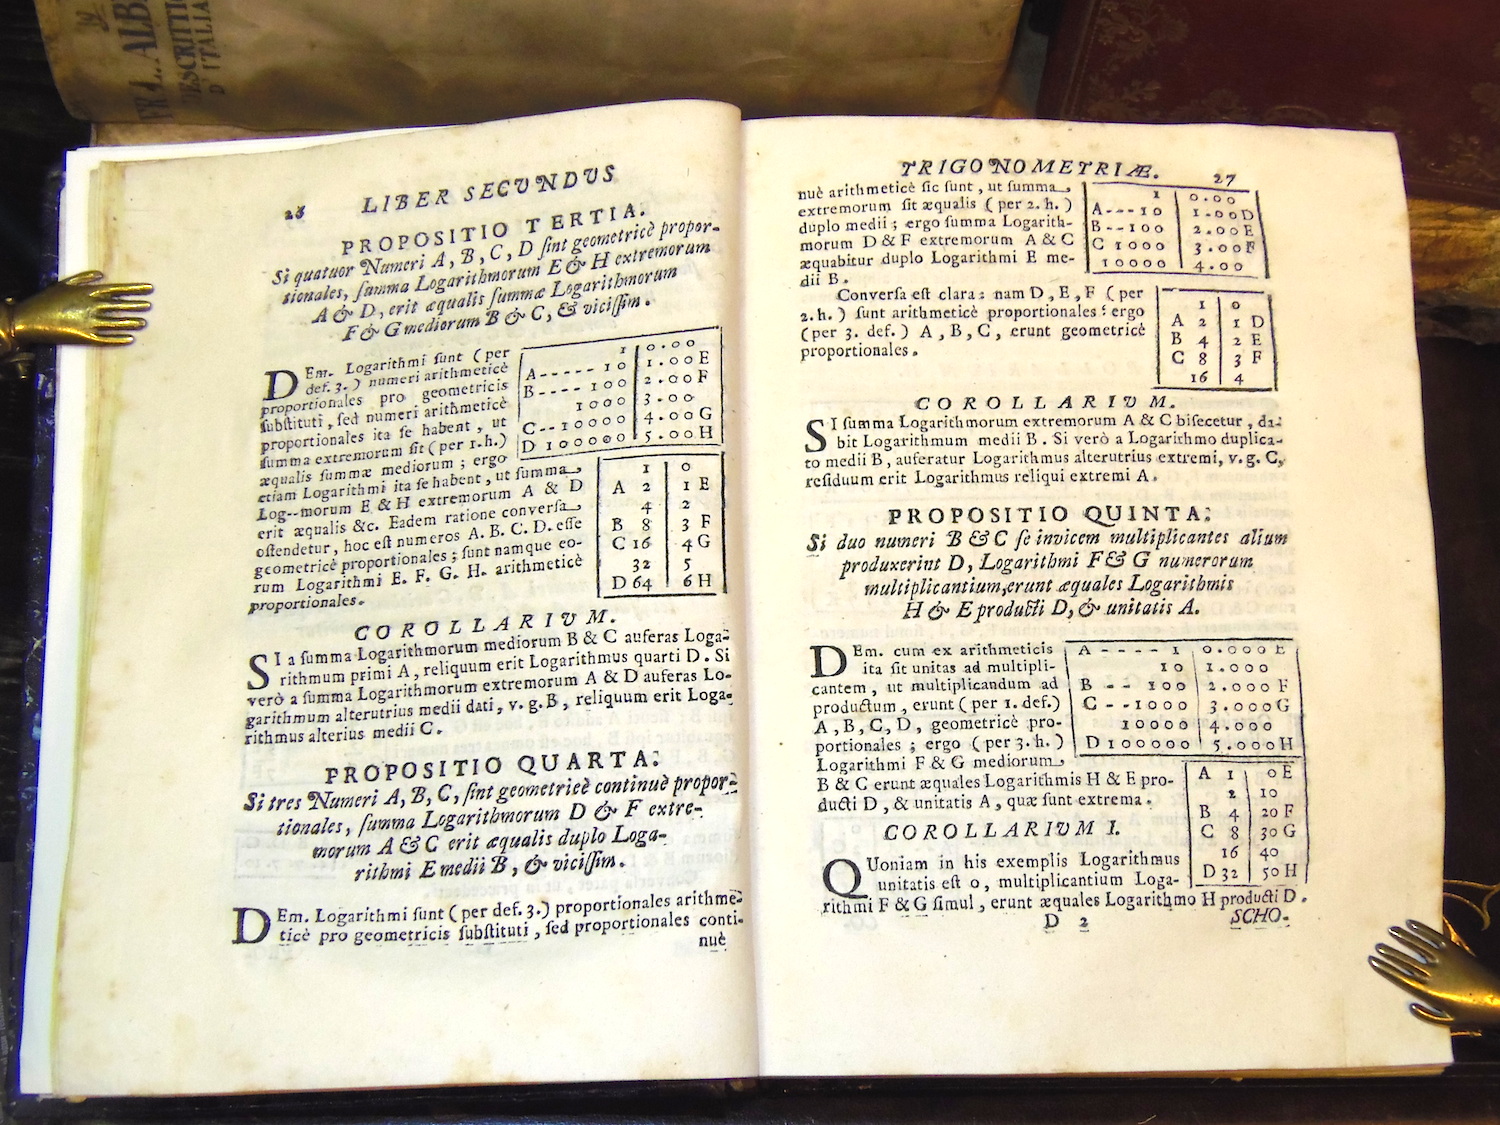 FR. L. ALB
DESCRITTI
D'ITALIA
26 LIBER SECVNDVS
PROPOSITIO TERTIA.
Si quatuor Numeri A, B, C, D ſint geometricè propor-
tionales, ſumma Logarithmorum E & H extremorum
A & D, erit æqualis ſummæ Logarithmorum
F & G mediorum B & C, & viciſſim.
DEm. Logarithmi ſunt (per
def. 3.) numeri arithmeticè
proportionales pro geometricis
ſubſtituti, ſed numeri arithmeticè
proportionales ita ſe habent, ut
ſumma extremorum ſit (per 1. h.)
æqualis ſummæ mediorum; ergo
etiam Logarithmi ita ſe habent, ut ſumma
Log--morum E & H extremorum A & D
erit æqualis &c. Eadem ratione converſa
oſtendetur, hoc eſt numeros A. B. C. D. eſſe
geometricè proportionales; ſunt namque eo-
rum Logarithmi E. F. G. H. arithmeticè
proportionales.
1 | 0.00
A----- 10 | 1.00 E
B---- 100 | 2.00 F
1000 | 3.00
C--10000 | 4.00 G
D 100000 | 5.00 H
1 | 0
A 2 | 1 E
4 | 2
B 8 | 3 F
C 16 | 4 G
32 | 5
D 64 | 6 H
COROLLARIVM.
SI a ſumma Logarithmorum mediorum B & C auferas Loga-
rithmum primi A, reliquum erit Logarithmus quarti D. Si
verò a ſumma Logarithmorum extremorum A & D auferas Lo-
garithmum alterutrius medii dati, v. g. B, reliquum erit Loga-
rithmus alterius medii C.
PROPOSITIO QUARTA.
Si tres Numeri A, B, C, ſint geometricè continuè propor-
tionales, ſumma Logarithmorum D & F extre-
morum A & C erit æqualis duplo Loga-
rithmi E medii B, & viciſſim.
DEm. Logarithmi ſunt (per def. 3.) proportionales arithme-
ticè pro geometricis ſubſtituti, ſed proportionales conti-
nuè
TRIGONOMETRIÆ. 27
nuè arithmeticè ſic ſunt, ut ſumma
extremorum ſit æqualis (per 2. h.)
duplo medii; ergo ſumma Logarith-
morum D & F extremorum A & C
æquabitur duplo Logarithmi E me-
dii B.
1 | 0.00
A---10 | 1.00D
B--100 | 2.00E
C 1000 | 3.00F
10000 | 4.00
Converſa eſt clara: nam D, E, F (per
2. h.) ſunt arithmeticè proportionales: ergo
(per 3. def.) A, B, C, erunt geometricè
proportionales.
1 | 0
A 2 | 1 D
B 4 | 2 E
C 8 | 3 F
16 | 4
COROLLARIVM.
SI ſumma Logarithmorum extremorum A & C biſecetur, da-
bit Logarithmum medii B. Si verò a Logarithmo duplica-
to medii B, auferatur Logarithmus alterutrius extremi, v. g. C,
reſiduum erit Logarithmus reliqui extremi A.
PROPOSITIO QUINTA.
Si duo numeri B & C ſe invicem multiplicantes alium
produxerint D, Logarithmi F & G numerorum
multiplicantium, erunt æquales Logarithmis
H & E producti D, & unitatis A.
DEm. cum ex arithmeticis
ita ſit unitas ad multipli-
cantem, ut multiplicandum ad
productum, erunt (per 1. def.)
A, B, C, D, geometricè pro-
portionales; ergo (per 3. h.)
Logarithmi F & G mediorum
B & C erunt æquales Logarithmis H & E pro-
ducti D, & unitatis A, quæ ſunt extrema.
A - - - - 1 | 0.000 E
10 | 1.000
B - - 100 | 2.000 F
C --1000 | 3.000G
10000 | 4.000
D 100000 | 5.000H
A 1 | 0 E
2 | 10
B 4 | 20 F
C 8 | 30 G
16 | 40
D 32 | 50 H
COROLLARIVM I.
QUoniam in his exemplis Logarithmus
unitatis eſt 0, multiplicantium Loga-
rithmi F & G ſimul, erunt æquales Logarithmo H producti D.
D 2 SCHO-